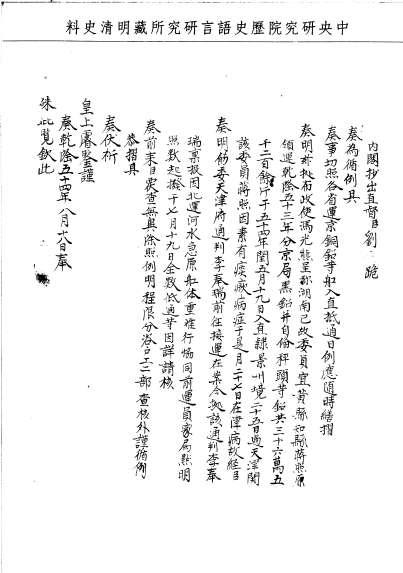 中央研究院歷史語言研究所藏明清史料
內閣抄出直督劉 跪
奏為循例具
奏事切照各省運京銅鉛等船入直抵通日例應隨時繕摺
奏明茲据布政使馮光熊呈称湖南已故委員宜黃縣知縣蔣照原
領運乾隆五十三年分京局黑鉛并自俻秤頭等鉛共三十六萬五
千二百餘斤于五十四年閏五月十九日入直隸景州境二十五日過天津關
該委員蔣照因素有痰嗽病症于是月二十七日在津病故経臣
奏明飭委天津府通判李奉瑞前往接運在案今拠該通判李奉
瑞稟报因北運河水急原船体重难行恊同前運員家屬點明
照数起撥于七月十九日全数抵通等因詳請核
奏前来臣覆查無異除照例明程限分咨户工二部查核外謹循例
恭摺具
奏伏祈
皇上睿鑒謹
奏乾隆五十四年八月十八日奉
硃批覽欽此